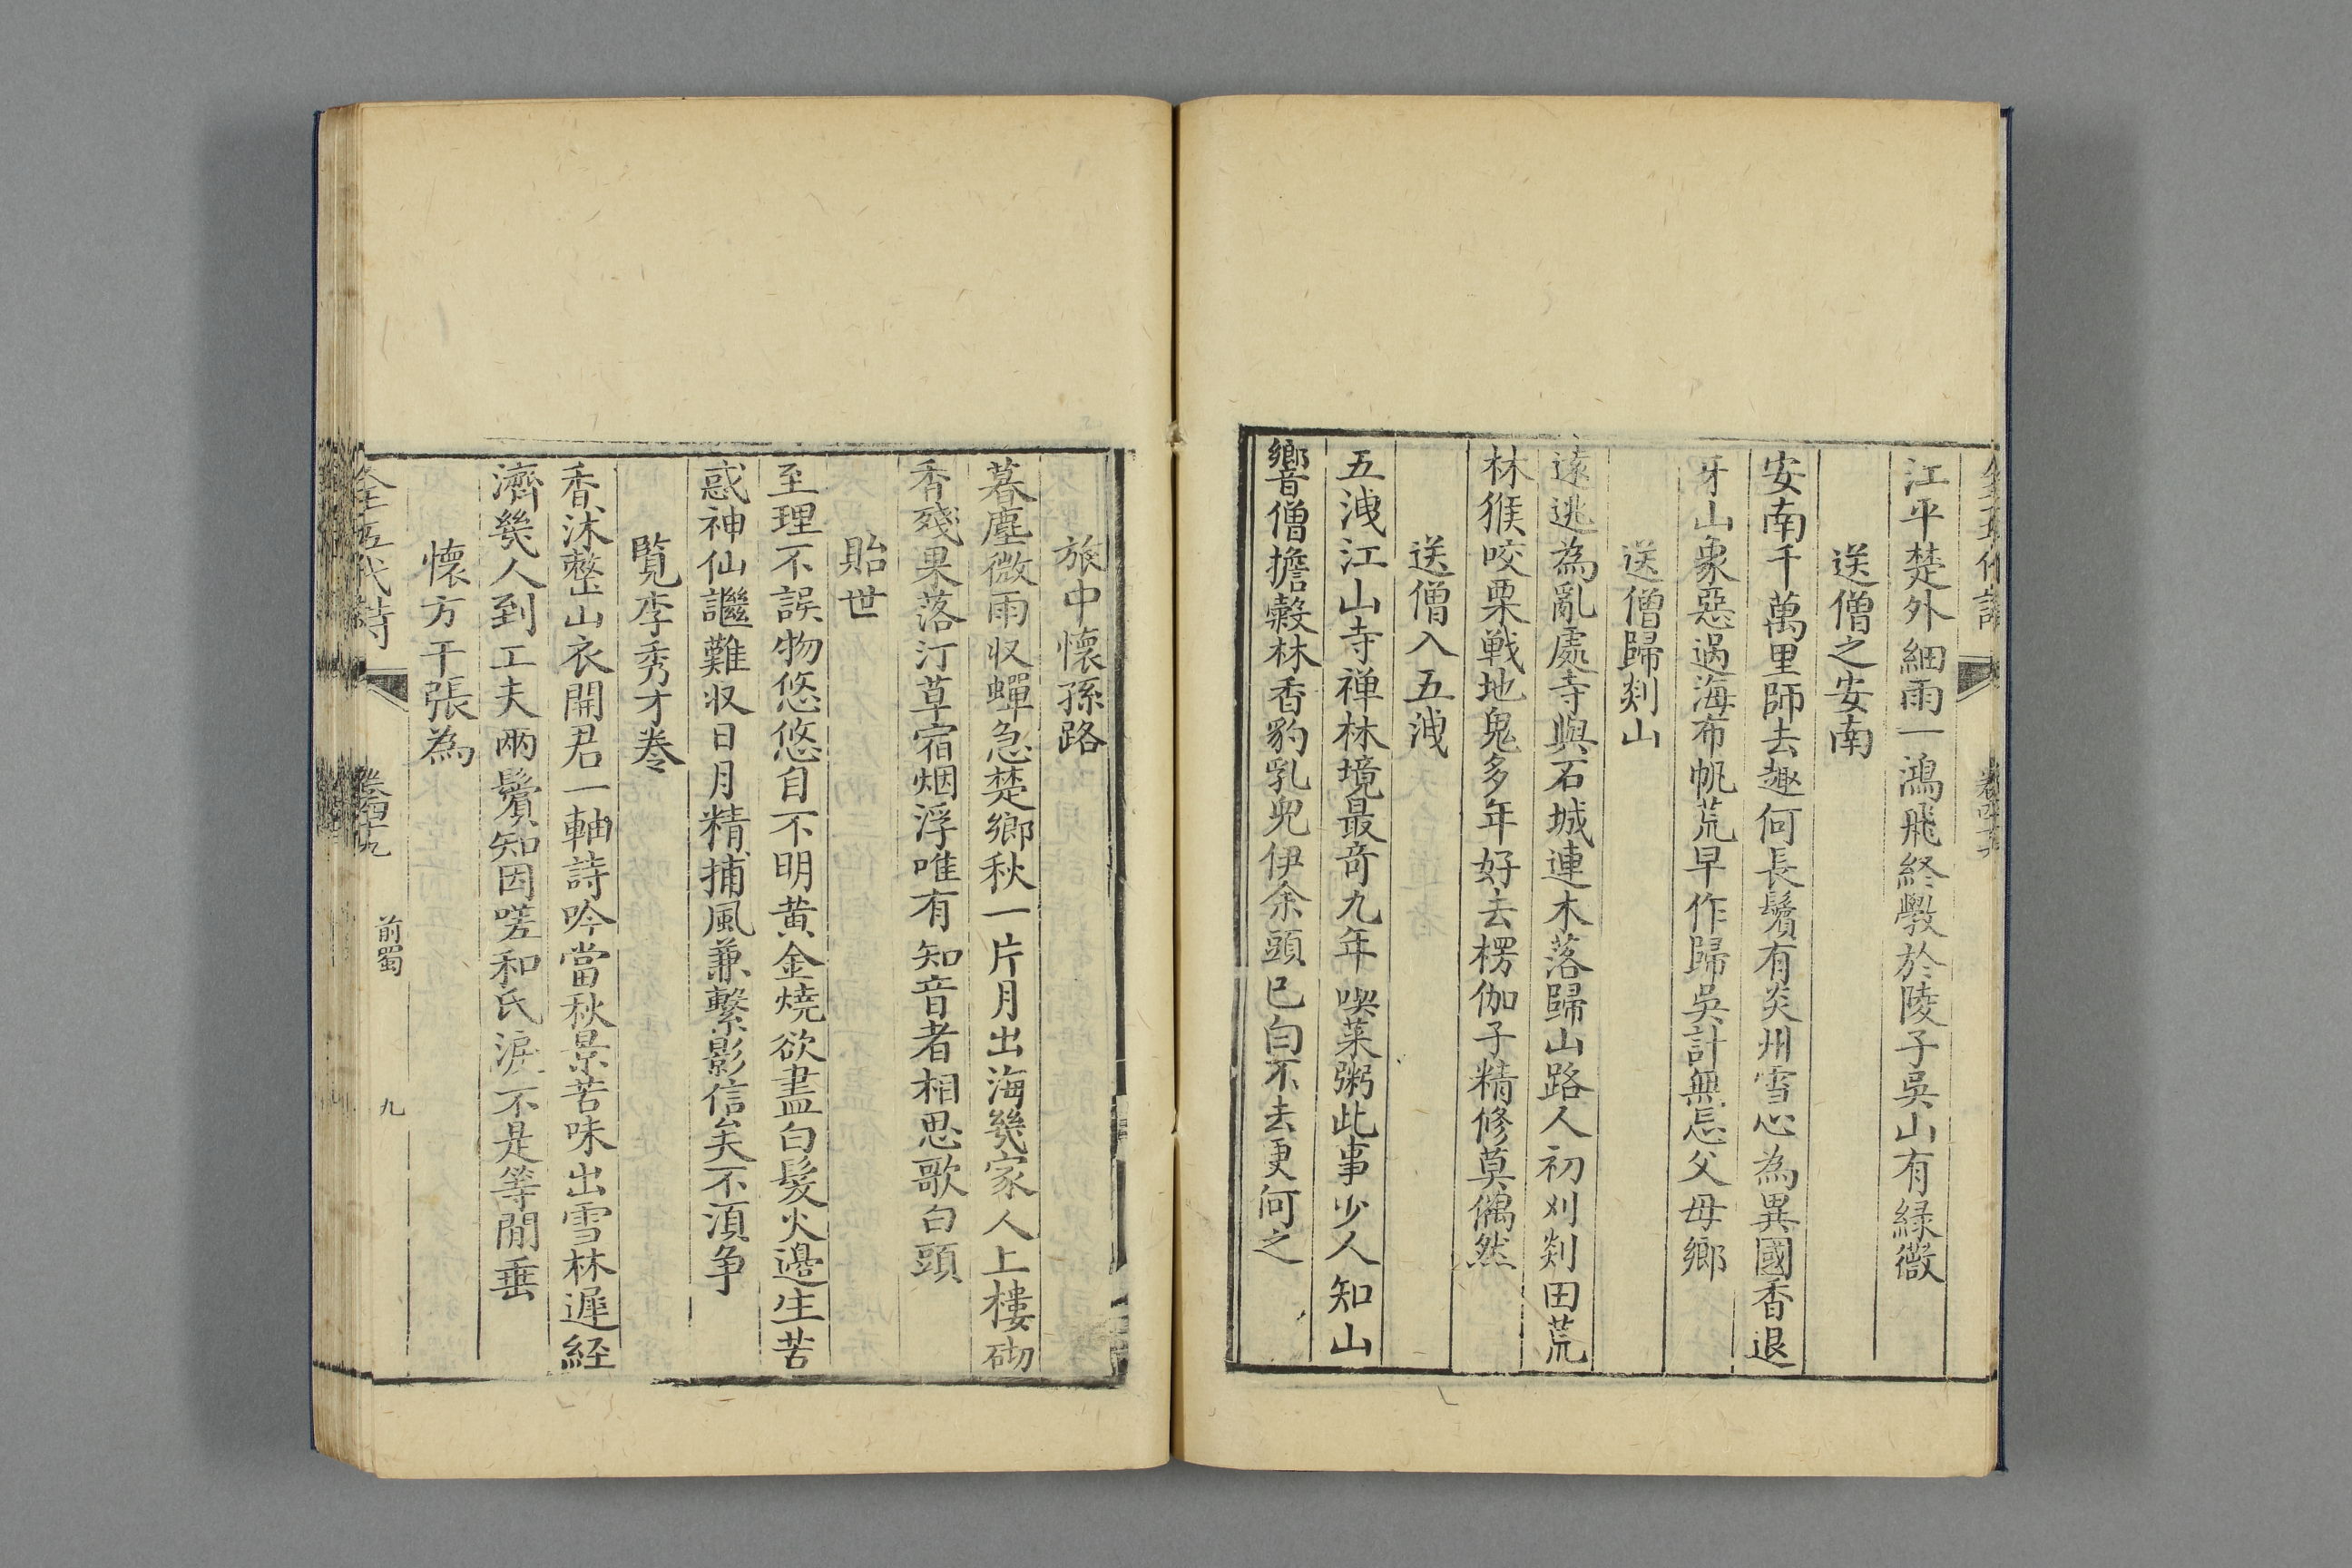 全五代詩 卷四十九
江平楚外細雨一鴻飛終斆於陵子吳山有緑薇
送僧之安南
安南千萬里師去趣何長鬢有炎州雪心為異國香退
牙山象惡過海布帆荒早作歸吳計無忘父母鄉
送僧歸剡山
遠逃為亂處寺與石城連木落歸山路人初刈剡田荒
林猴咬栗戰地鬼多年好去楞伽子精修莫偶然
送僧入五洩
五洩江山寺禅林境最竒九年喫菜粥此事少人知山
響僧擔榖林香豹乳兒伊余頭已白不去更何之
旅中懷孫路
暮塵微雨収蟬急楚鄉秋一片月出海幾家人上樓砌
香殘果落汀草宿烟浮唯有知音者相思歌白頭
貽世
至理不誤物悠悠自不明黄金燒欲盡白髮火邊生苦
惑神仙謳難収日月精捕風兼繫影信矣不湏争
覽李秀才卷
香沐整山衣開君一軸詩吟當秋景苦味出雪林遲經
濟幾人到工夫兩鬢知因嗟和氏淚不是等閒垂
懷方干張為
全五代詩 卷四十九 前蜀 九